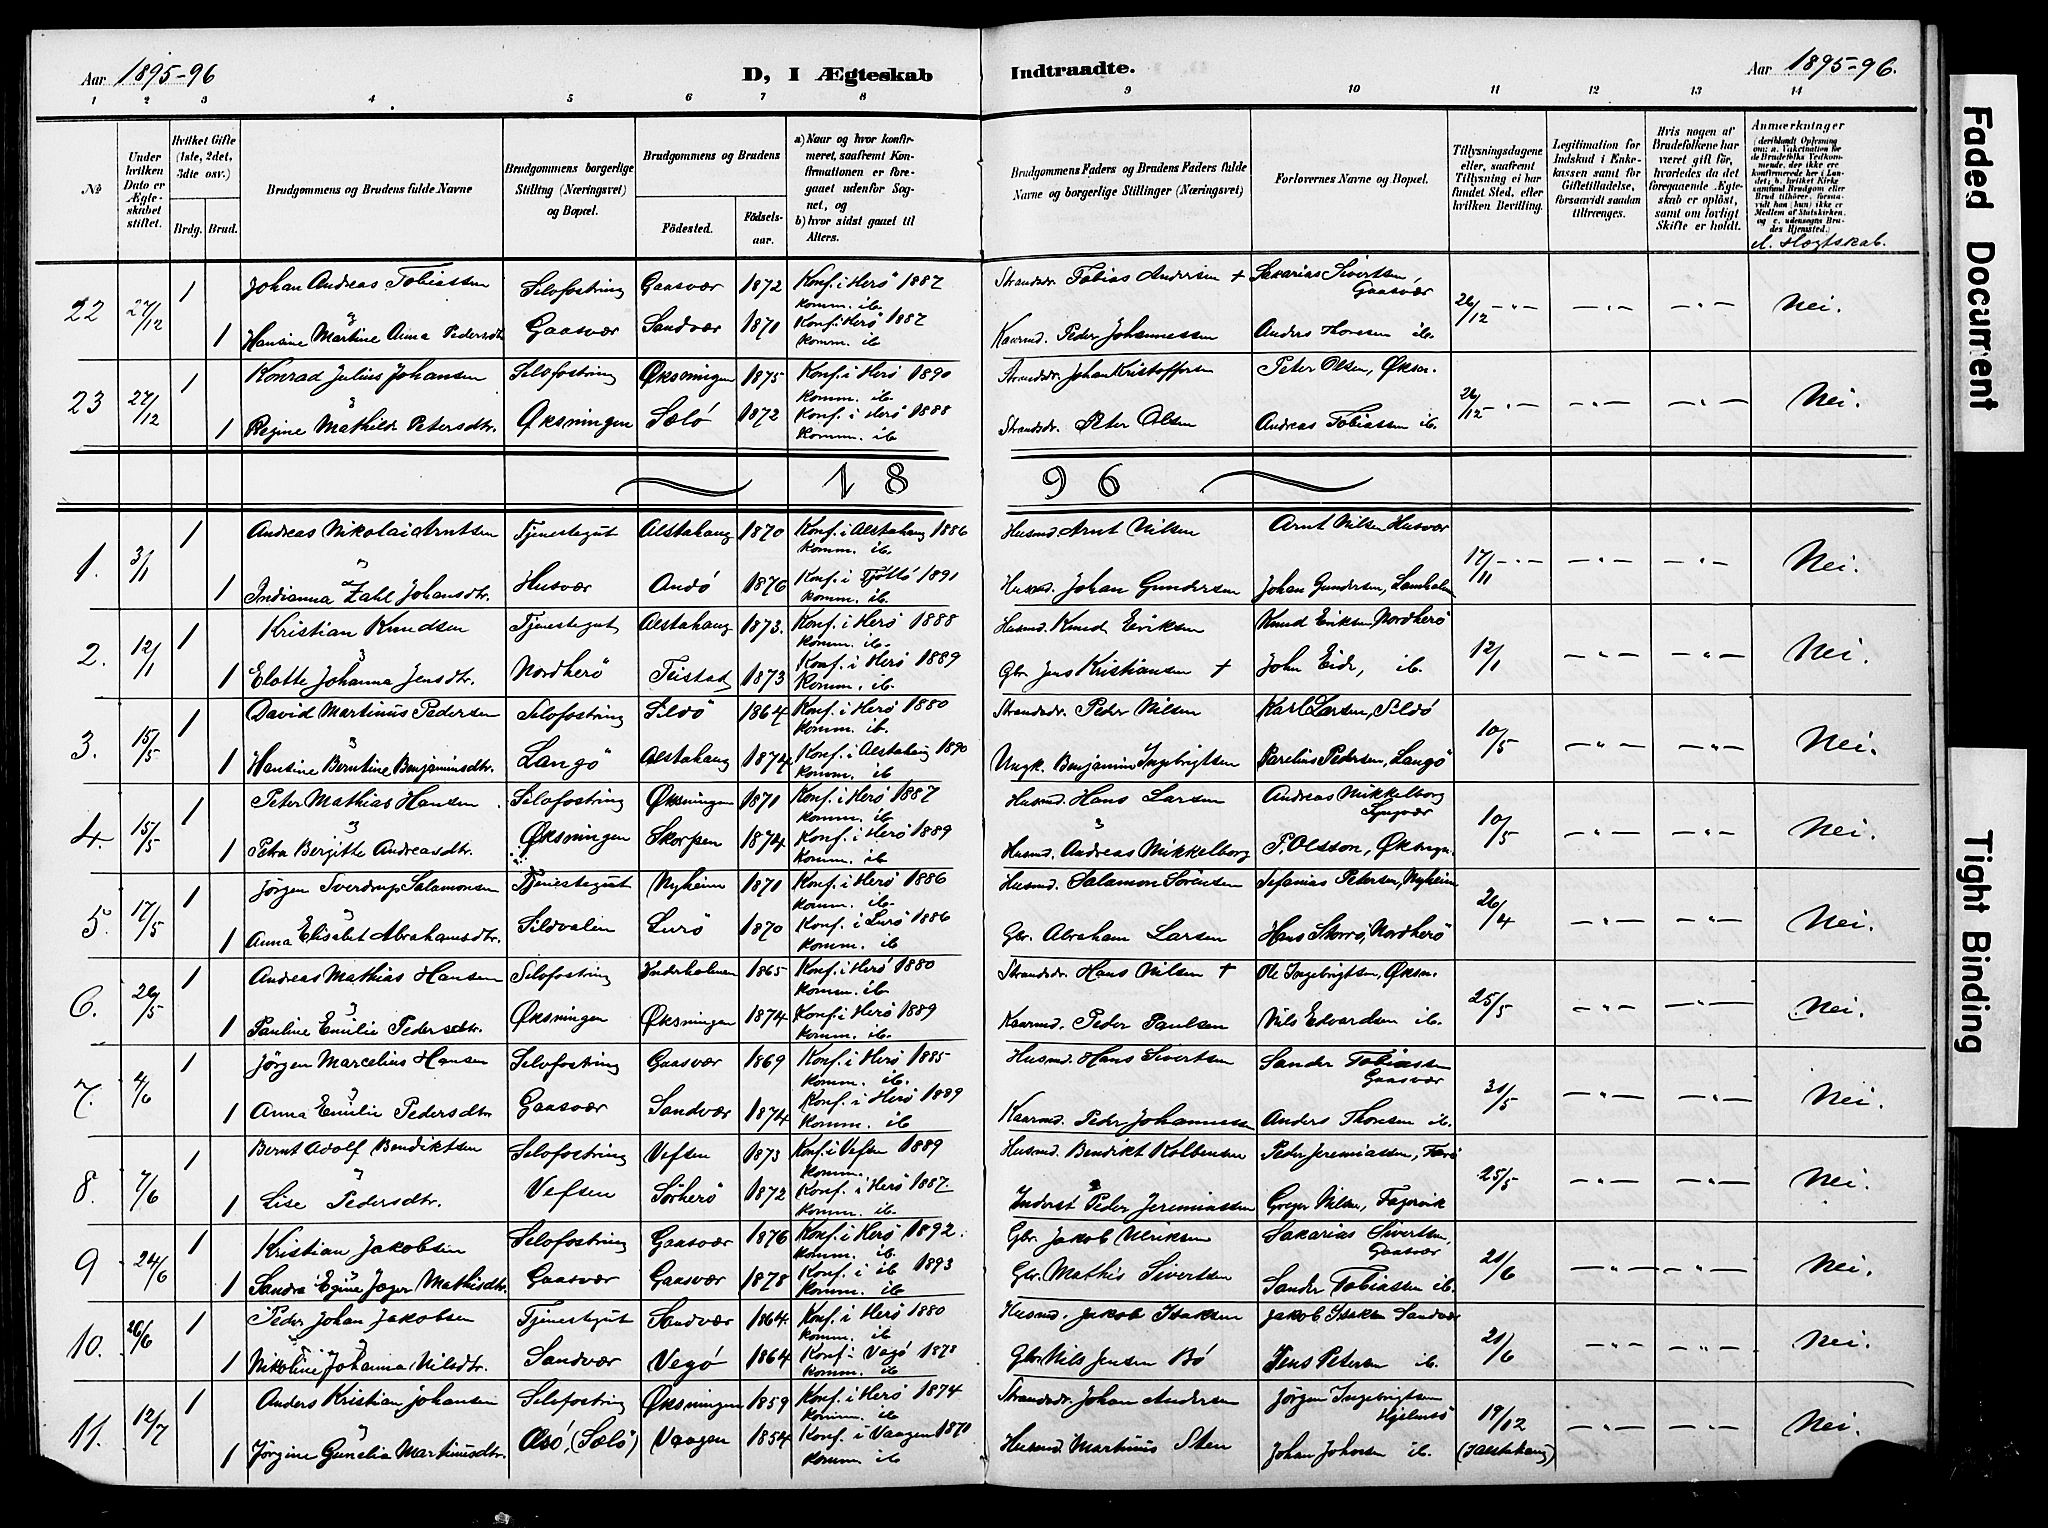 Aar 1895-96
D, I Ægteskab
Indtraadte.
Aar 1895-96.
1 2 3 4. 5 6 7 8 9 10 11 12 13 14
No
Under hvilken Dato er Ægteskabet stiftet.
Hvilket Gifte (1ste, 2det, 3die osv.)
Brdg. Brud.
Brudgommens og Brudens fulde Navne
Brudgommens borgerlige Stilling (Næringsvei) og Bopæl.
Brudgommens og Brudens
Födested.
Födselsaar.
a) Naar og hvor konfirmeret, saafremt Konfirmationen er foregaaet udenfor Sognet, og
b) hvor sidst gaaet til Alters.
Brudgommens Faders og Brudens Faders fulde Navne og borgerlige Stillinger (Næringsvei)
Forlovernes Navne og Bopæl.
Tillysningsdagene eller, saafremt Tillysning ei har fundet Sted, efter hvilken Bevilling.
Legitimation for Indskud i Enkekassen samt for Giftetilladelse, forsaavidt saadan tiltrænges.
Hvis nogen af Brudefolkene har været gift før, hvorledes da det foregaaende Ægteskab er opløst, samt om lovligt Skifte er holdt.
Anmærkninger
(deriblandt Oplysning om: a. Vakcination for de Brudefolks Vedkommende, der ikke ere konfirmerede her i Landet; b. hvilket Kirkesamfund Brudgom eller Brud tilhører, forsaavidt han (hun) ikke er Medlem af Statskirken, og c. udensogns Brudes Hjemsted.)
d. Slegtskab.
22 27/12 1 Johan Andreas Tobiassen Selofostring Gaasvær 1872 Konf. i Herö 1887 komm. ib. Strandsdr. Tobias Andersen + Sakarias Sivertsen, Gaasvær 26/12 Nei.
1 Hansine Martine Anna Pedersdtr. Gaasvær Sandvær 1870 Konf. i Herö 1887 komm. ib Kaarmd. Peder Johannessen Anders Thoresen ib.
23 27/12 1 Konrad Julius Johansen Selofostring Øksningen 1875 Konf. i Herö 1890 komm. ib. Strandsdr. Johan Kristoffersen Peter Olsen, Øksn. 26/12 Nei.
1 Regine Mathilde Petersdtr. Øksningen Sælö 1872 Konf. i Herö 1888 komm. ib Strandsdr. Peter Olsen Andreas Tobiassen ib.
1896
1. 3/1 1 Andreas Nikolai Arntsen Tjenestegut Alstahaug 1870 Konf. i Alstahaug 1886 komm. ib. Husmd. Arnt Nilsen Arnt Nilsen Husvær 17/11 Nei.
1 Indianna Zahl Johansdtr. Husvær Andö 1876 Konf. i Tjöttö 1891 komm. ib. Husmd. Johan Gundersen Johan Gundersen, Lamholm
2. 12/1 1 Kristian Knudsen Tjenestegut Alstahaug 1873. Konf. i Herö 1888 komm. ib. Husmd. Knud Eriksen Knud Eriksen, Nordherö 12/1 Nei.
1 Elotte Johanna Jensdtr. Nordherö Teistad 1873 Konf. i Herö 1889 Komm. ib. Gbr. Jens Kristiansen + John Eide, ib.
3. 15/5 1 David Martinus Pedersen Selofostring Sildö 1864 Konf. i Herö 1880 Komm. ib. Strandsdr. Peder Nilsen Karl Larsen, Sildö 10/5 Nei.
1 Hansine Berntine Benjaminsdtr. Langö Alstahaug 1874 Konf. i Alstahaug 1890 komm. ib Ungk. Benjamin Ingebrigtsen Parelius Pedersen, Langö
4. 15/5 1 Peter Mathias Hansen Selofostring Øksningen 1871 Konf. i Herö 1887 komm. ib Husmd. Hans Larsen Andreas Mikkelborg 10/5 Nei.
1 Petra Bergitte Andreasdtr. Øksningen Skorpen 1874 Konf. i Herö 1889 komm. ib Husmd. Andreas Mikkelborg P. Olsson, Øksngn.
5. 17/5 1 Jörgen Sverdrup Salamonsen Tjenestegut Nyheim 1871 Konf. i Herö 1886 komm. ib. Husmd. Salamon Sörensen Sefanias Petersen, Nyheim 26/4 Nei.
1 Anna Elisabet Abrahamsdtr. Sildvalen Lurö 1870 Konf. i Lurö 1886 komm. ib Gbr. Abraham Larsen Hans Storrö, Nordherö
6. 26/5 1 Andreas Mathias Hansen Selofostring Inderholmen 1865 Konf. i Herö 1880 komm. ib. Strandsdr. Hans Nilsen + Ole Ingebrigtsen, Øksn. 25/5 Nei.
1 Pauline Emilie Pedersdtr. Øksningen Øksningen 1874 Konf. i Herö 1889 komm. ib. Kaarmd. Peder Paulsen Nils Edvardsen ib.
7. 4/6 1 Jörgen Marcelius Hansen Selofostring Gaasvær 1869 Konf. i Herö 1885 komm. ib. Husmd. Hans Sivertsen Sander Tobiassen Gaasvær 31/5 Nei.
1 Anna Emilie Pedersdtr. Gaasvær Sandvær 1874 Konf. i Herö 1889 Komm. ib Kaarmd. Peder Johannessen Anders Thoresen ib.
8. 7/6 1 Bernt Adolf Bendiktsen Selofostring Vefsen 1873 Konf. i Vefsen 1889 komm. Husmd. Bendikt Kolbensen Peder Jeremiassen, 25/5 Nei.
1 Lise Pedersdtr. Vefsen Sörherö 1872 Konf. i Herö 1887. komm. ib Inderst Peder Jeremiassen Greger Nilsen, Fagervik
9 24/6 1 Kristian Jakobsen Selofostring Gaasvær 1876 Konf. i Herö 1892. komm. ib. Gbr. Jakob Ulriksen Sakarias Sivertsen, Gaasvær 21/6 Nei.
1 Sandra Egine Jæger Mathisdtr. Gaasvær Gaasvær 1878 Konf. i ib 1893 Komm. ib Gbr. Mathis Sivertsen Sander Tobiassen ib.
10. 26/6 1 Peder Johan Jakobsen Tjenestegut Sandvær 1864 Konf. i Herö 1880 komm. ib. Husmd. Jakob Isaksen Jakob Isaksen Sandvær 21/6 Nei.
1 Nikoline Johanna Nilsdtr. Sandvær Vegö 1864 Konf. i Vegö 1878 komm. ib Gbr. Nils Jensen Bö Jens Petersen ib.
11. 12/7 1 Anders Kristian Johansen Selofostring Øksningen 1859 Konf. i Herö 1874 komm. ib Strandsdr. Johan Andersen Jörgen Ingebrigtsen Hjelmsö 19/12 Nei.
1 Jörgine Gunelia Martinusdtr. Olsö, (Sælö) Vaagen 1854 Konf. i Vaagen 1870 komm. ib Husmd. Martinus Sten Johan Johnsen ib. (i Alstahaug)
Faded Document
Tight Binding